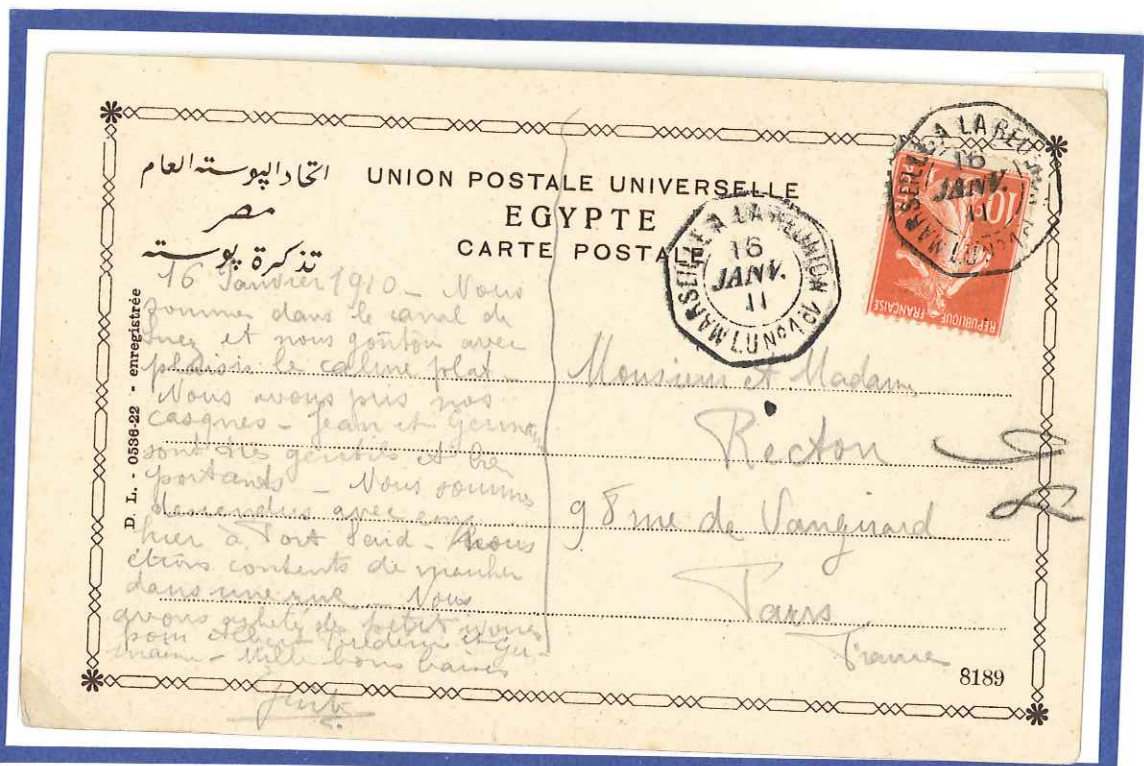 اتحاد البوسته العام
مصر
تذكرة بوسته
UNION POSTALE UNIVERSELLE
EGYPTE
CARTE POSTALE
MARSEILLE A LA REUNION
16
JANV.
11
L.U Nº
MARSEILLE A LA REUNION
16
JANV.
11
10
REPUBLIQUE FRANÇAISE
D. L. - 0536-22 - enregistrée
16 Janvier 1910 - Nous
sommes dans le canal de
Suez et nous goûtons avec
plaisir le calme plat -
Nous avons pris nos
casques - Jean et
sont très gentils et bien
portants - Nous sommes
descendus avec eux
hier à Port Said - Nous
étions contents de marcher
dans une rue - Nous
avons acheté de
pour
Mille bons baisers
Monsieur et Madame
Recton
98 rue de
Paris
France
8189